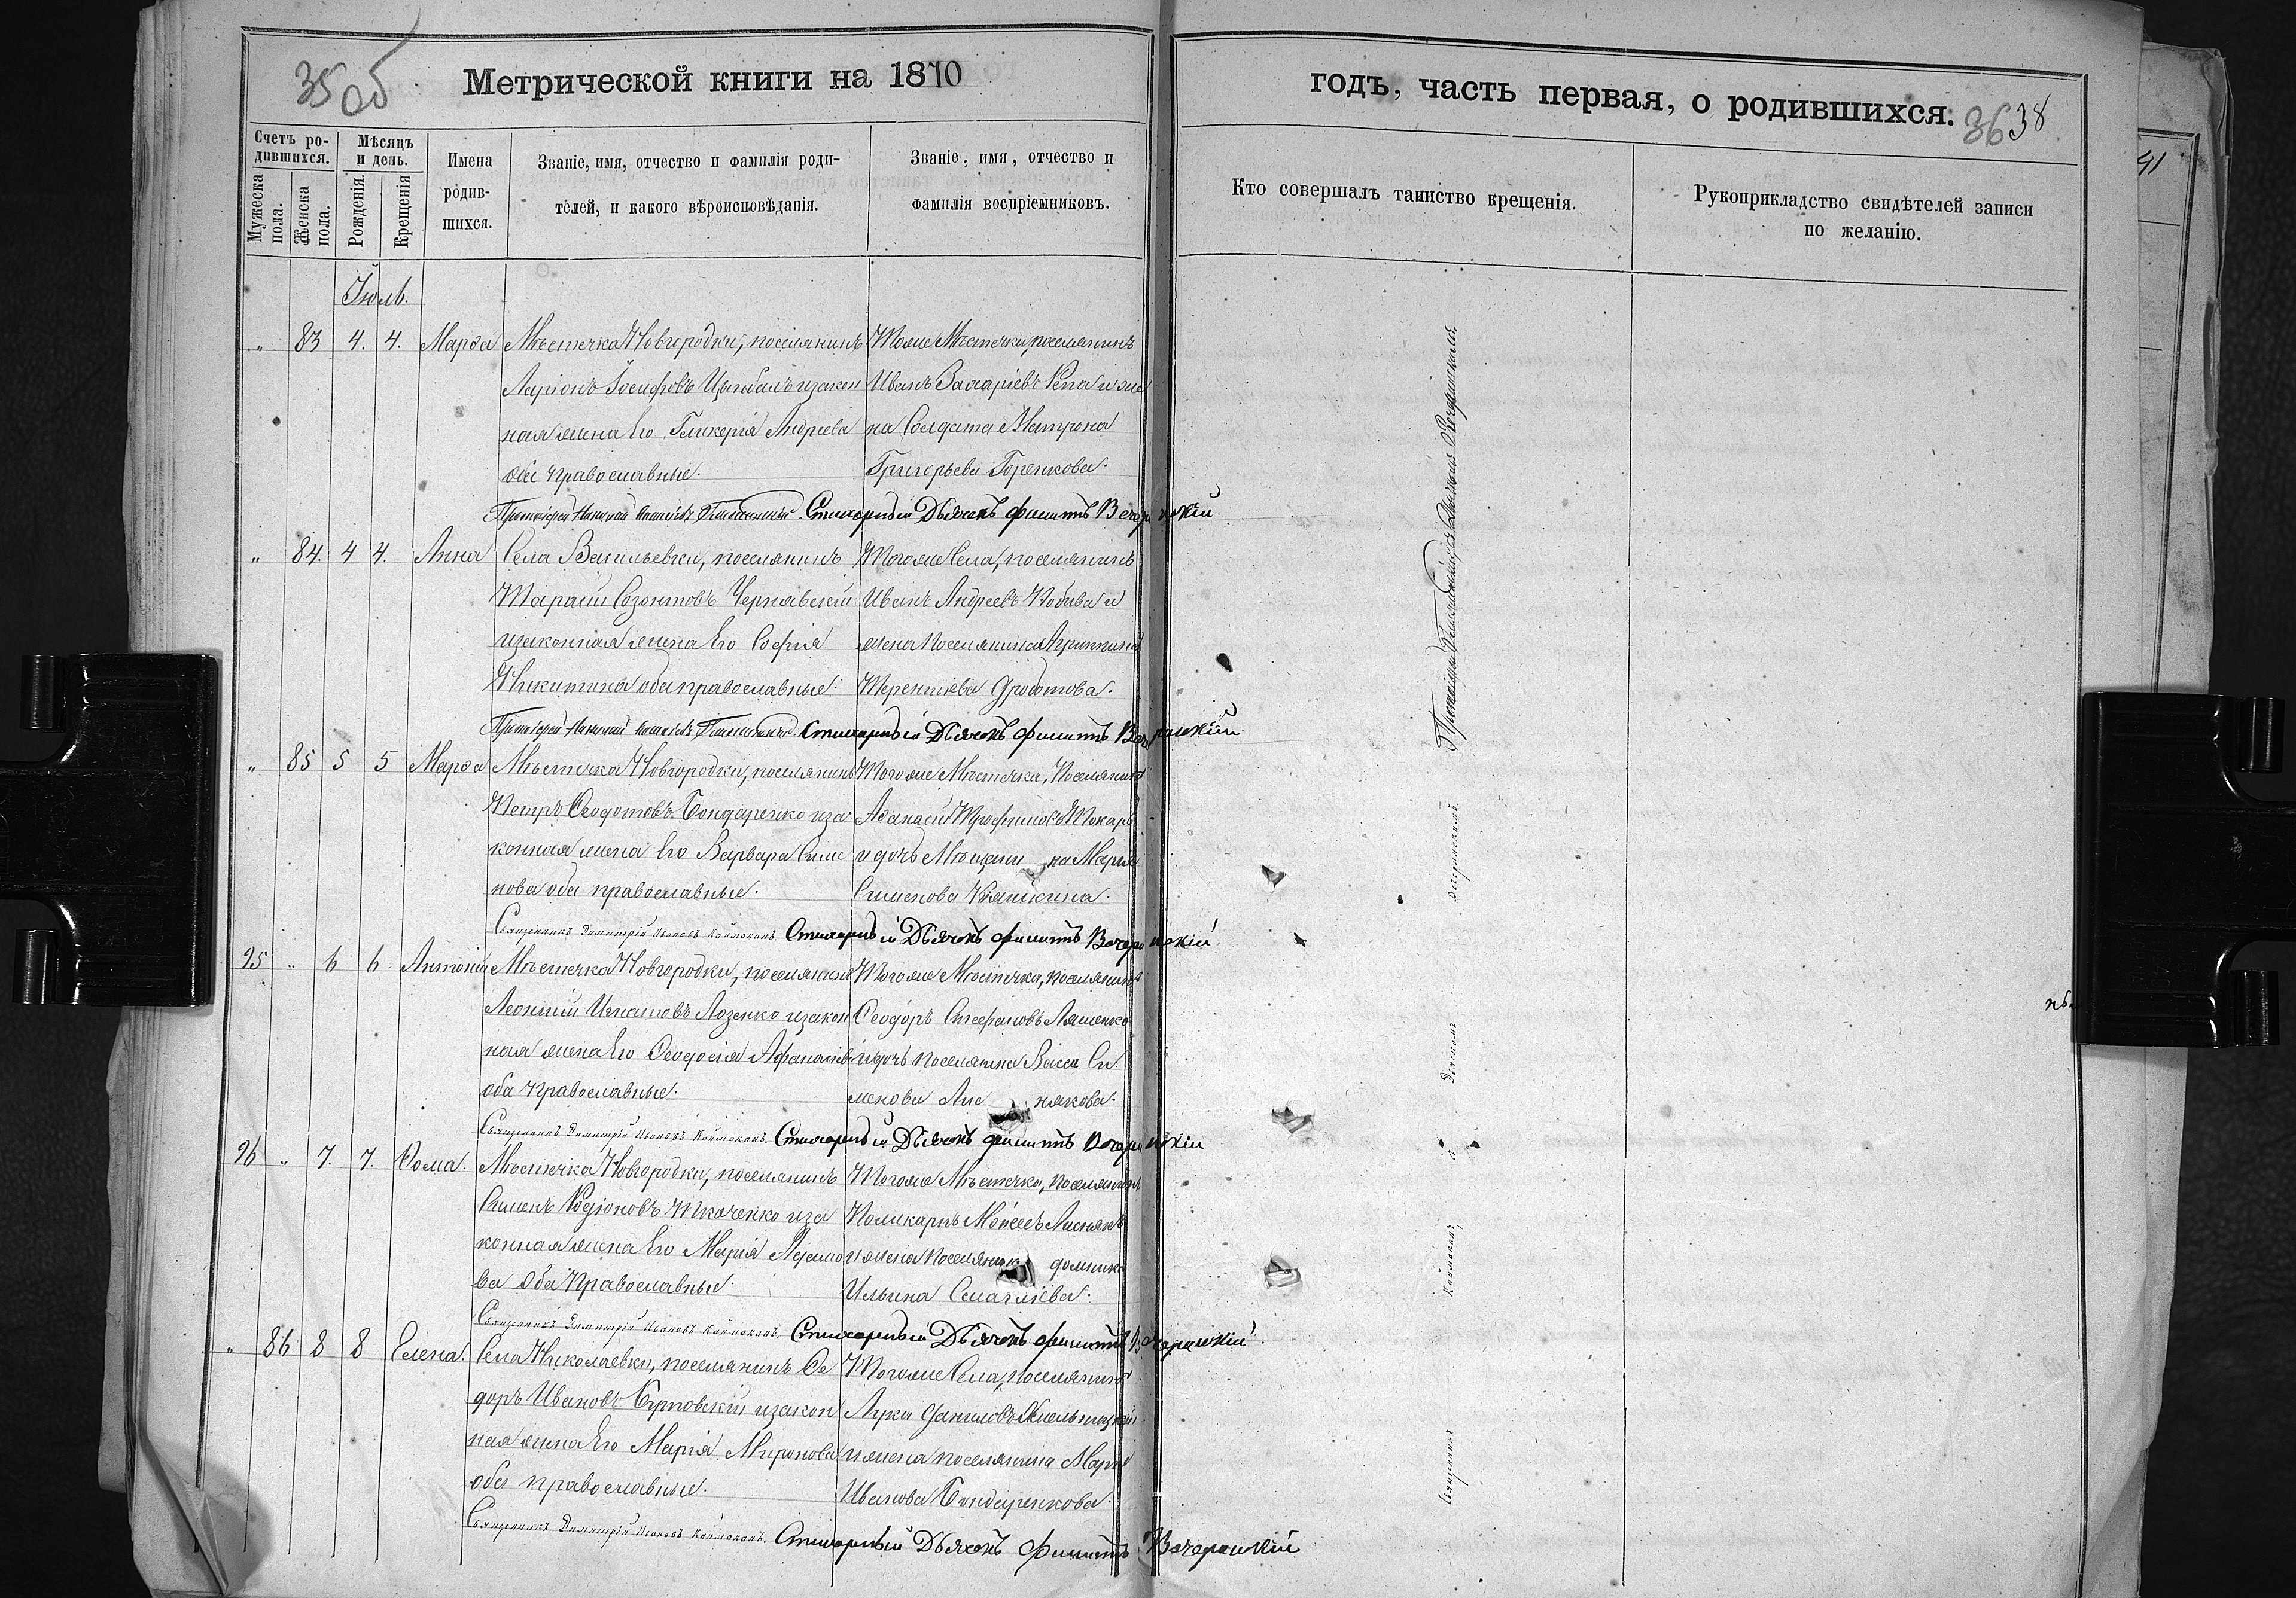 35об
Метрической книги на 1870
годъ, часть первая, о родившихся.
36 38
41
Счетъ родившихся.
Мужеска пола.
Женска пола.
Мѣсяцъ и день.
Рожденія.
Крещенія.
Имена родившихся.
Званіе, имя, отчество и фамилія родителей, и какого вѣроисповѣданія.
Званіе, имя, отчество и фамилія воспріемниковъ.
Кто совершалъ таинство крещенія.
Рукоприкладство свидѣтелей записи по желанію.
Іюль.
„ 83 4. 4. Марѳа
Мѣстечка Новгородки, поселянинъ
Ларіонъ Іосифовъ Цымбалъ изакон
ная жена Его Гликерія Андреева
оба православные.
Тогоже Мѣстечка, поселянинъ
Иванъ Захаріевъ Репа и же
на Солдата Матрона
Григорьева Горенкова.
Протоіерей Николай Стихарный Дьячекъ Филиппъ
„ 84. 4 4. Анна
Села Васильевки, поселянинъ
Тарасій Созонтовъ Чернявскій
изаконная жена Его Софія
Никитина оба православные.
Тогоже Села, поселянинъ
Иванъ Андреевъ и
жена Поселянина Агрипина
Терентіева
Протоіерей Николай Стихарный Дьячекъ Филиппъ
„ 85 5 5 Марѳа
Мѣстечка Новгородки, поселянинъ
Петръ Ѳеодотовъ Бондаренко иза
конная жена Его Варвара Симо
нова оба православные.
Тогоже Мѣстечка, Поселянинъ
Аѳанасій Трофимовъ Токарь
и дочь Мѣщани на Марія
Сименова
Священникъ Димитрій Ивановъ Каймоконъ. Стихарный Дьячекъ Филиппъ
95 „ 6 6 Антоній
Мѣстечка Новгородки, поселянинъ
Леонтій Игнатовъ Лозенко изакон
ная жена Его Ѳеодосія Афанасіева
оба Православные.
Тогоже Мѣстечка, поселянинъ
Ѳеодоръ Стефановъ Ляшенко
и дочь Поселянина Васса Си
менова Лис някова.
Священникъ Димитрій Ивановъ Каймоконъ. Стихарный Дьячекъ Филиппъ
96 „ 7. 7. Ѳома.
Мѣстечка Новгородки, поселянинъ
Сименъ Родіоновъ Ткаченко иза
конная жена Его Марія Адамо
ва оба Православные.
Тогоже Мѣстечка, Поселянинъ
Поликарпъ Моѵсеевъ Лиснякъ
и жена Поселянина Домника
Ильина
Священникъ Димитрій Ивановъ Каймоконъ. Стихарный Дьячекъ Филиппъ
„ 86 8 8 Елена.
Села Николаевки, поселянинъ Ѳе
доръ Ивановъ изакон
ная жена Его Марія Миронова
оба православные.
Тогоже Села, поселянинъ
Лука Даниловъ Хмельницкій
и жена поселянина Марія
Иванова Бондаренкова.
Священникъ Димитрій Ивановъ Каймоконъ. Стихарный Дьячекъ Филиппъ
Протоіерей
Священникъ Каймоконъ, а Дьячкомъ